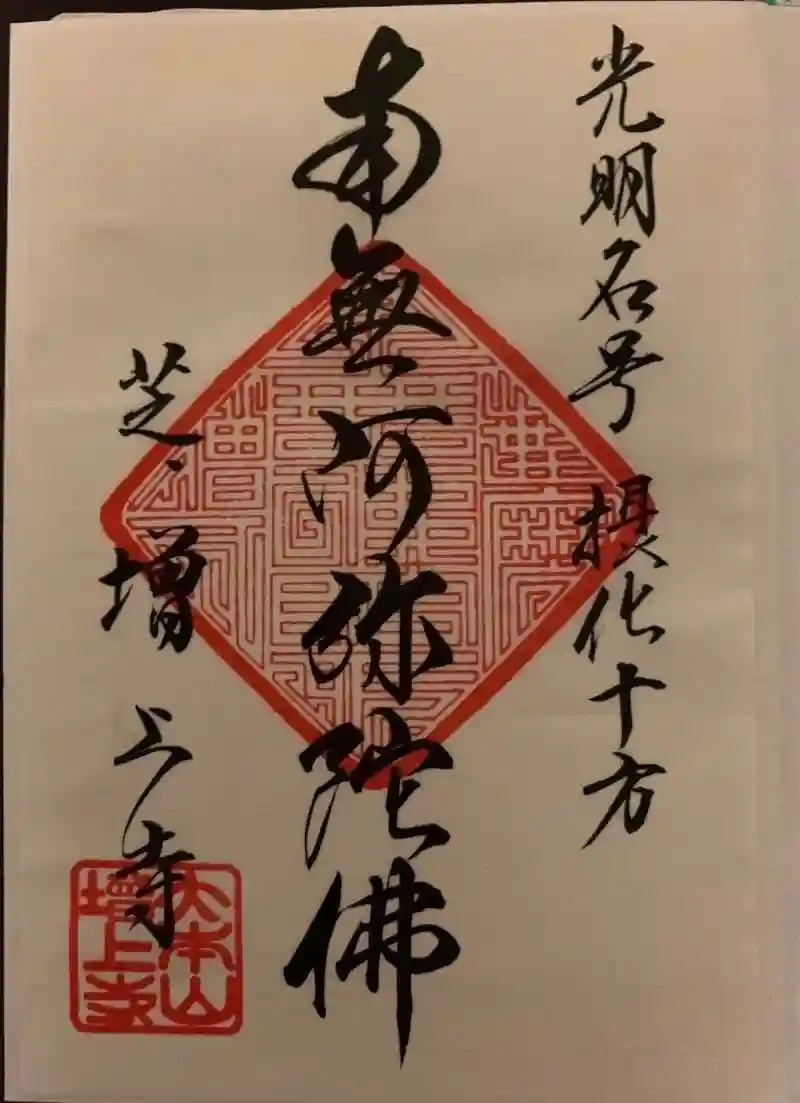 光明名号 摂化十方
南無阿弥陀佛
芝、増上寺
大本山
增上寺